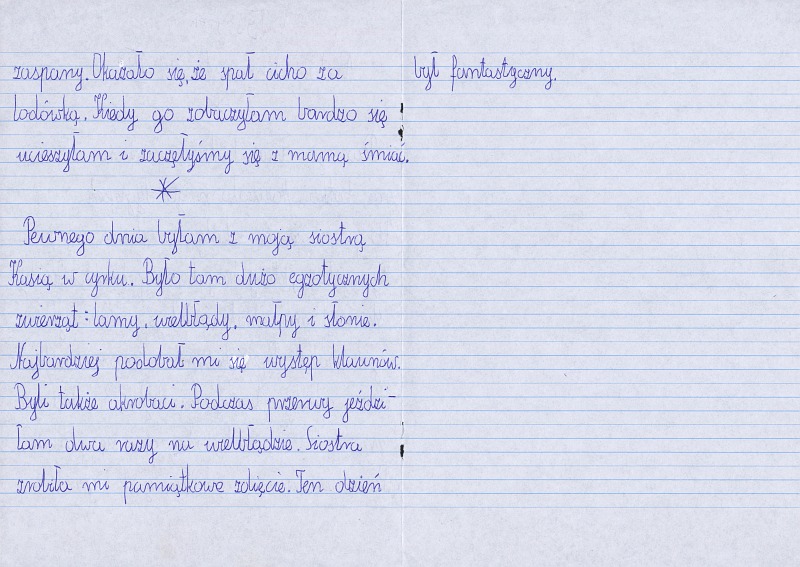 zaspany. Okazało się, że spał cicho za
lodówką. Kiedy go zobaczyłam bardzo się
ucieszyłam i zaczęłyśmy się z mamą śmiać.
*
Pewnego dnia byłam z moją siostrą
Kasią w cyrku. Było tam dużo egzotycznych
zwierząt: lamy, wielbłądy, małpy i słonie.
Najbardziej podobał mi się występ klaunów.
Byli także akrobaci. Podczas przerwy jeździ-
łam dwa razy na wielbłądzie. Siostra
zrobiła mi pamiątkowe zdjęcie. Ten dzień
był fantastyczny.